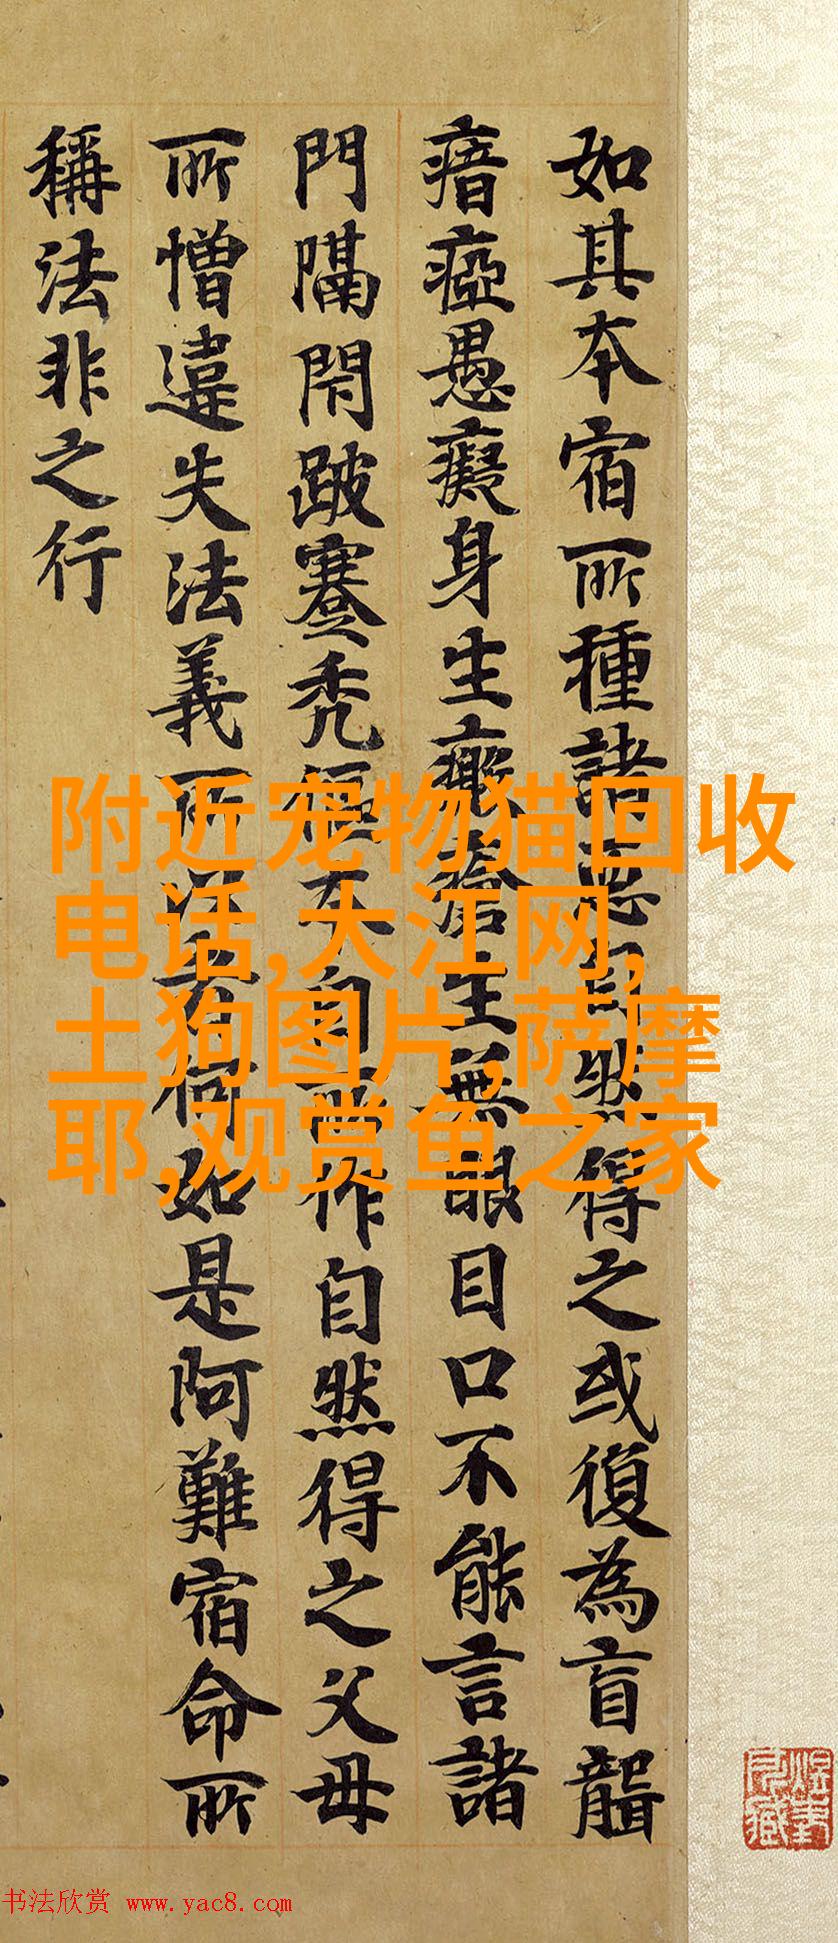 如其本宿所種諸惡自然得之或復為盲聾
瘖瘂愚癡身生癩瘡生無眼目口不能言諸
門隔閇跛蹇禿自作自然得之父母
所憎違失法義所何如是阿難宿命所
稱法非之行
附近宠物猫回收
电话,大江网,
土狗图片,萨摩
耶,观赏鱼之家
书法欣赏 www.yac8.com